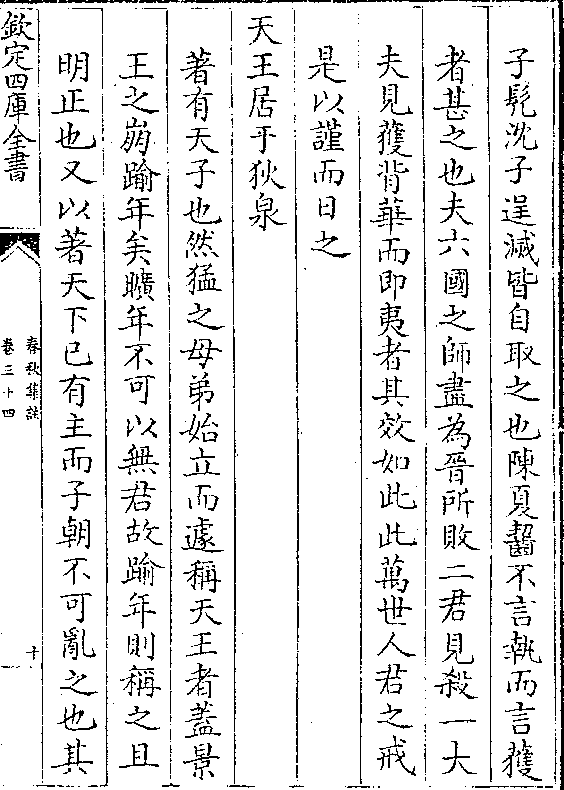 子髡沈子逞滅皆自取之也陳夏齧不言執而言獲
者甚之也夫六國之師盡為晉所敗二君見殺一大
夫見獲背華而即夷者其效如此此萬世人君之戒
是以謹而日之
天王居于狄泉
著有天子也然猛之母弟始立而遽稱天王者蓋景
王之崩踰年矣曠年不可以無君故踰年則稱之且
明正也又以著天下已有主而子朝不可亂之也其
欽定四庫全書
春秋集註
卷三十四
十